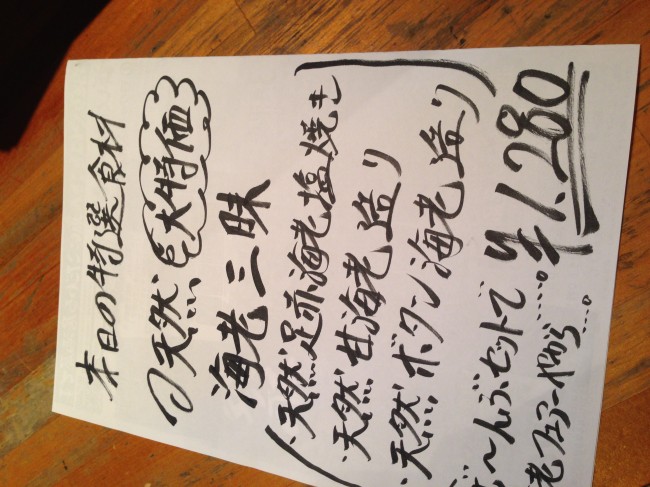 本日の特選食材
天然 大特価
海老三昧
天然足赤海老塩焼き
天然甘海老造り
天然ボタン海老造り
ぜ〜んぶセットで…。¥1,280
老フェアーやから…。